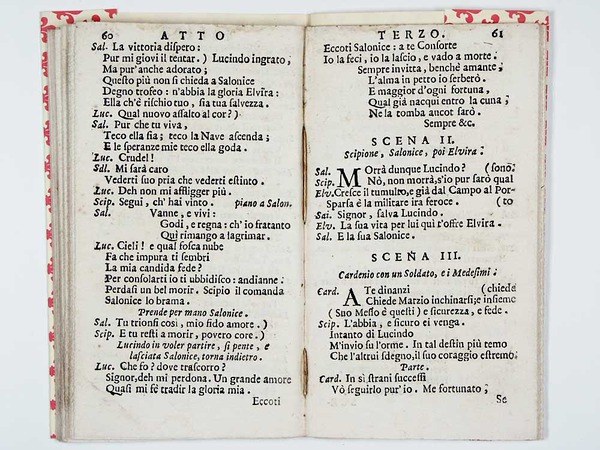 60 ATTO
Sal. La vittoria dispero:
Pur mi giovi il tentar. ) Lucindo ingrato,
Ma pur'anche adorato;
Questo più non si chieda a Salonice
Degno trofeo: n'abbia la gloria Elvira:
Ella ch'è rischio tuo, sia tua salvezza.
Luc. Qual nuovo assalto al cor? )
Sal. Pur che tu viva,
Teco ella sia; teco la Nave ascenda;
E le speranze mie teco ella goda.
Luc. Crudel!
Sal. Mi sarà caro
Vederti suo pria che vederti estinto.
Luc. Deh non mi affligger più.
Scip. Segui, ch'hai vinto. piano a Salon.
Sal. Vanne, e vivi:
Godi, e regna: ch'io fratanto
Quì rimango a lagrimar.
Luc. Cieli! e qual fosca nube
Fa che impura ti sembri
La mia candida fede?
Per consolarti io ti ubbidisco: andianne:
Perdasi un bel morir. Scipio il comanda
Salonice lo brama.
Prende per mano Salonice.
Sal. Tu trionfi così, mio fido amore. )
Scip. E tu resti a morir, povero core. )
Lucindo in voler partire, si pente, e
lasciata Salonice, torna indietro.
Luc. Che fo? dove trascorro?
Signor, deh mi perdona. Un grande amore
Quasi mi fè tradir la gloria mia.
Eccoti
TERZO. 61
Eccoti Salonice: a te Consorte
Io la feci, io la lascio, e vado a morte.
Sempre invitta, benchè amante,
L'alma in petto io serberò.
E maggior d'ogni fortuna,
Qual già nacqui entro la cuna;
Ne la tomba ancor sarò.
Sempre &c.
SCENA II.
Scipione, Salonice, poi Elvira.
Sal. MOrrà dunque Lucindo? (sono.
Scip. Nò, non morrà, s'io pur sarò qual
Elv. Cresce il tumulto, e già dal Campo al Por-
Sparsa è la militare ira feroce. (to
Sal. Signor, salva Lucindo.
Elv. La sua vita per lui quì t'offre Elvira.
Sal. E la sua Salonice.
SCENA III.
Cardenio con un Soldato, e i Medesimi.
Card. ATe dinanzi (chiede
Chiede Marzio inchinarsi; e insieme
(Suo Messo è questi) e sicurezza, e fede.
Scip. L'abbia, e sicuro ei venga.
Intanto di Lucindo
M'invio su l'orme. In tal destin più temo
Che l'altrui sdegno, il suo coraggio estremo.
Parte.
Card. In sì strani successi
Vò seguirlo pur'io. Me fortunato;
Se